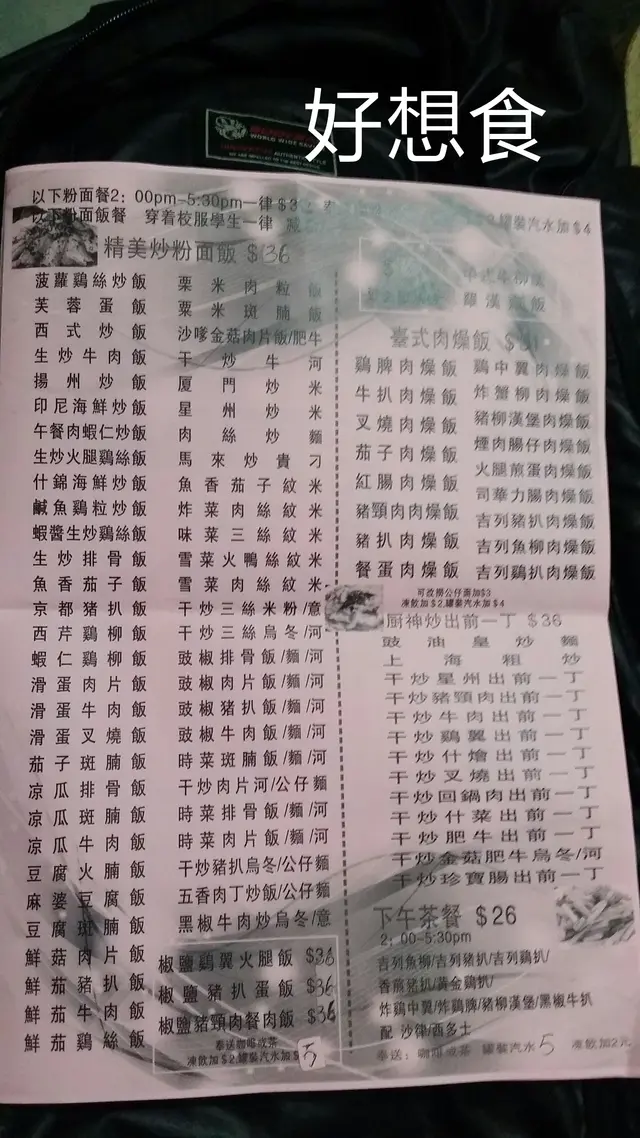 好想食
WORLD WIDE
以下粉面餐2：00pm-5:30pm一律$3
以下粉面飯餐 穿着校服學生一律 減
罐裝汽水加$4
精美炒粉面飯 $36
菠蘿鷄絲炒飯
芙蓉蛋飯
西式炒飯
生炒牛肉飯
揚州炒飯
印尼海鮮炒飯
午餐肉蝦仁炒飯
生炒火腿鷄絲飯
什錦海鮮炒飯
鹹魚鷄粒炒飯
蝦醬生炒鷄絲飯
生炒排骨飯
魚香茄子飯
京都豬扒飯
西芹鷄柳飯
蝦仁鷄柳飯
滑蛋肉片飯
滑蛋牛肉飯
滑蛋叉燒飯
茄子斑腩飯
凉瓜排骨飯
凉瓜斑腩飯
凉瓜牛肉飯
豆腐火腩飯
麻婆豆腐飯
豆腐斑腩飯
鮮菇肉片飯
鮮茄豬扒飯
鮮茄牛肉飯
鮮茄鷄絲飯
栗米肉粒飯
粟米斑腩飯
沙嗲金菇肉片飯/肥牛
干炒牛河
厦門炒米
星州炒米
肉絲炒麵
馬來炒貴刁
魚香茄子紋米
炸菜肉絲紋米
味菜三絲紋米
雪菜火鴨絲紋米
雪菜肉絲紋米
干炒三絲米粉/意
干炒三絲烏冬/河
豉椒排骨飯/麵/河
豉椒肉片飯/麵/河
豉椒豬扒飯/麵/河
豉椒牛肉飯/麵/河
時菜斑腩飯/麵/河
干炒肉片河/公仔麵
時菜排骨飯/麵/河
時菜肉片飯/麵/河
干炒豬扒烏冬/公仔麵
五香肉丁炒飯/公仔麵
黑椒牛肉炒烏冬/意
椒鹽鷄翼火腿飯 $36
椒鹽豬扒蛋飯 $36
椒鹽豬頸肉餐肉飯 $36
奉送咖啡或茶
凍飲加$2,罐裝汽水加$5
羅漢 飯
臺式肉燥飯 $31
鷄脾肉燥飯
牛扒肉燥飯
叉燒肉燥飯
茄子肉燥飯
紅腸肉燥飯
豬頸肉肉燥飯
豬扒肉燥飯
餐蛋肉燥飯
鷄中翼肉燥飯
炸蟹柳肉燥飯
豬柳漢堡肉燥飯
煙肉腸仔肉燥飯
火腿煎蛋肉燥飯
司華力腸肉燥飯
吉列豬扒肉燥飯
吉列魚柳肉燥飯
吉列鷄扒肉燥飯
可改撈公仔麵加$3
凍飲加$2,罐裝汽水加$4
厨神炒出前一丁 $36
豉油皇炒麵
上海粗炒
干炒星州出前一丁
干炒豬頸肉出前一丁
干炒牛肉出前一丁
干炒鷄翼出前一丁
干炒什燴出前一丁
干炒叉燒出前一丁
干炒回鍋肉出前一丁
干炒什菜出前一丁
干炒肥牛出前一丁
干炒金菇肥牛烏冬/河
干炒珍寶腸出前一丁
下午茶餐 $26
2：00-5:30pm
吉列魚柳/吉列豬扒/吉列鷄扒/
香煎豬扒/黃金鷄扒/
炸鷄中翼/炸鷄脾/豬柳漢堡/黑椒牛扒
配 沙律/西多士
奉送：咖啡或茶 罐裝汽水5 凍飲加2元